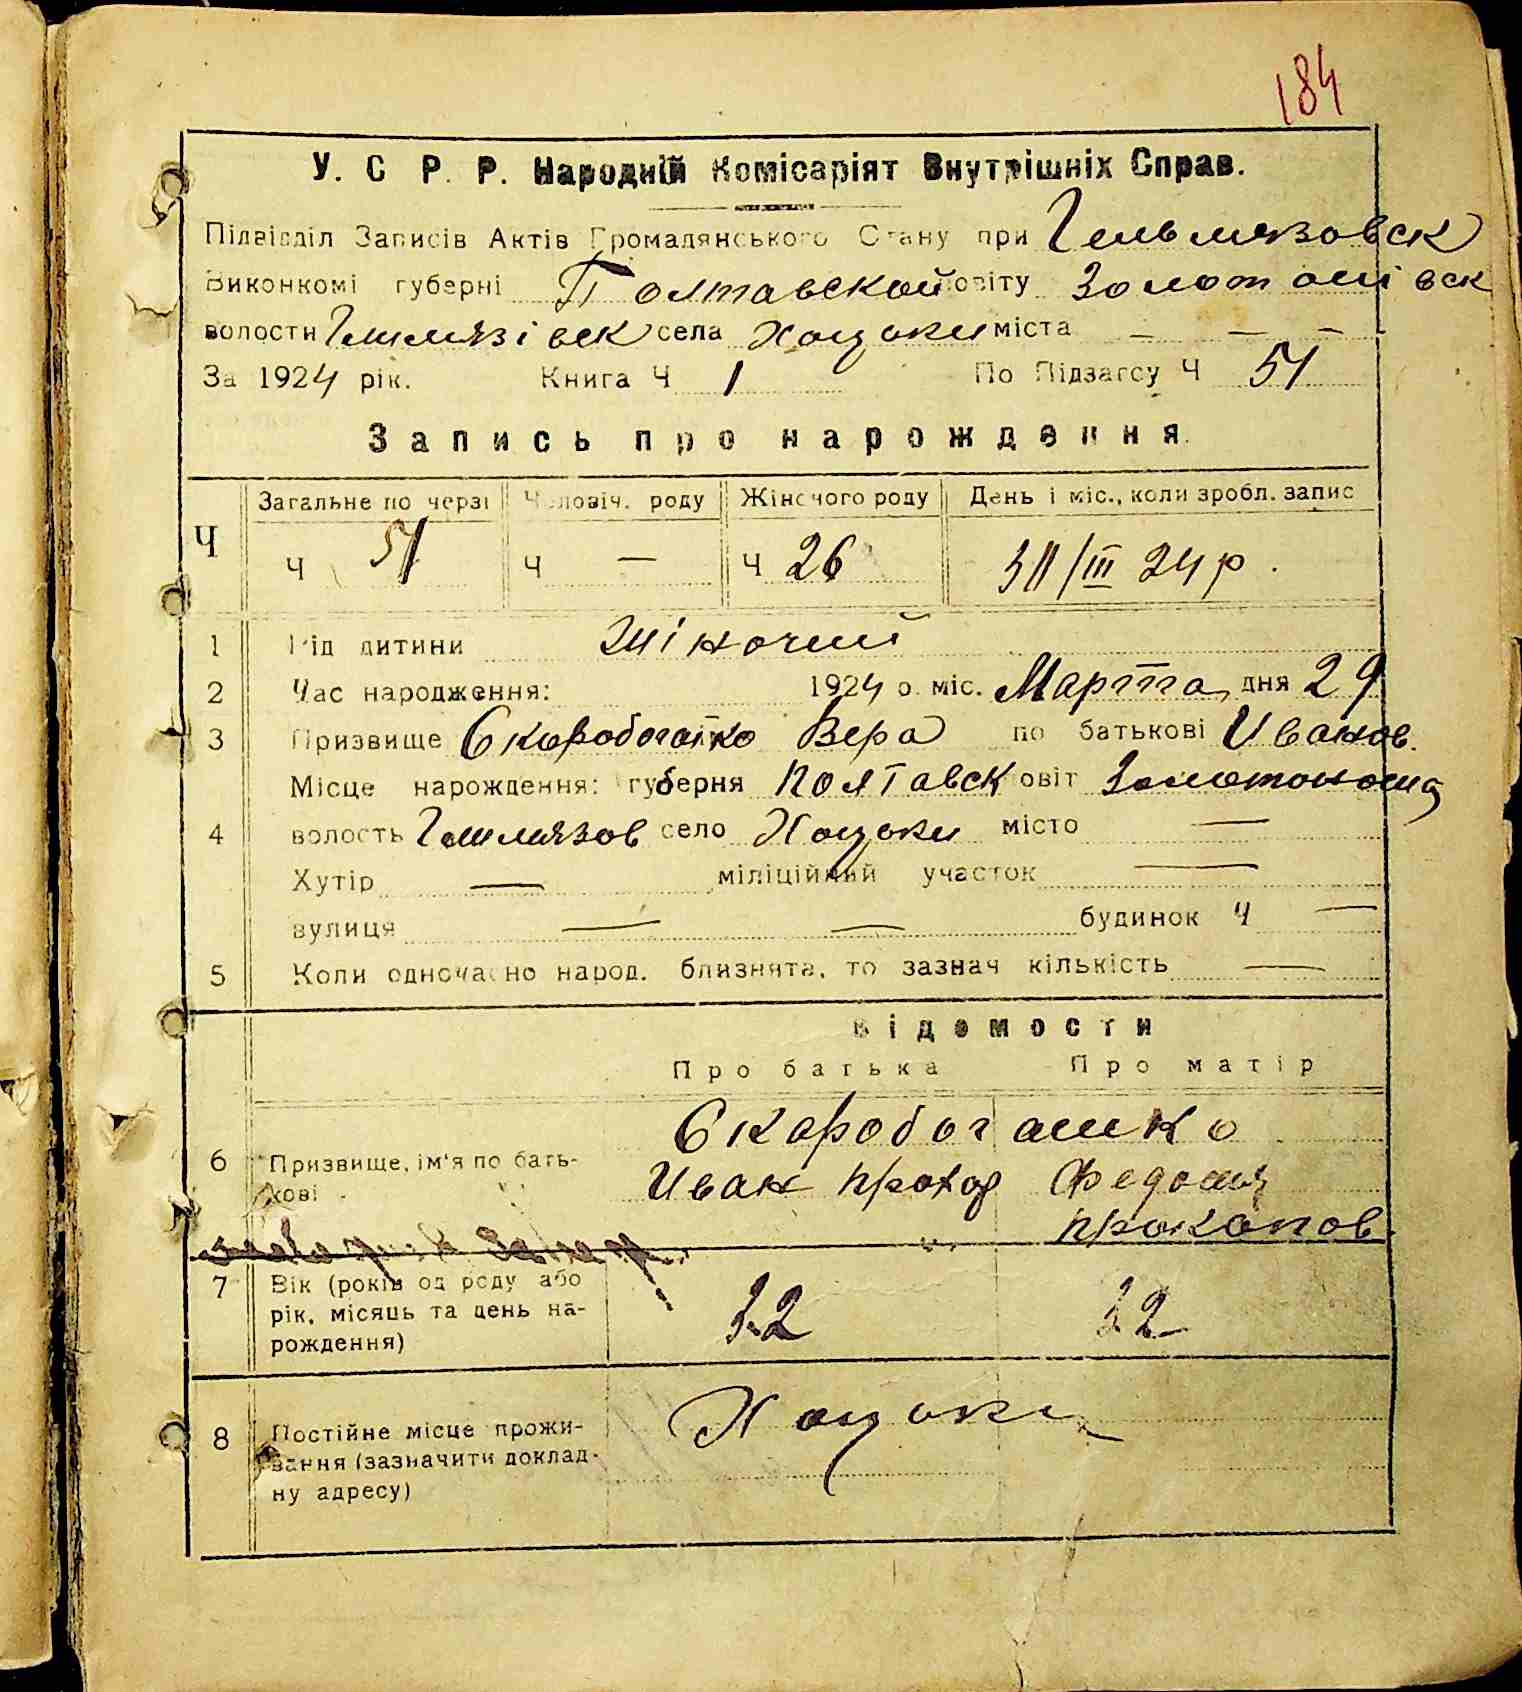 184
У. С Р. Р. Народній Комісаріят Внутрішніх Справ.
Підвідділ Записів Актів Громадянського Стану при Гельмязовск
Виконкомі губерні Полтавской овіту Золотонівск
волости Гельмязівск села Хоцьки міста — — —
За 1924 рік. Книга Ч 1 По Підзагсу Ч 51
Запись про нарождення
Ч Загальне по черзі Чоловіч. роду Жіночого роду День і міс., коли зробл. запис
Ч 51 Ч — Ч 26 31/III 24 р.
1 Рід дитини жіночий
2 Час народження: 1924 о. міс. Марта дня 29
3 Призвище Скоробогатко Вера по батькові Иванов.
Місце нарождення: губерня Полтавск овіт Золотоноша
4 волость Гельмязов село Хоцьки місто —
Хутір — міліційний участок —
вулиця — — будинок Ч —
5 Коли одночасно народ. близнята, то зазнач кількість —
Відомости
Про батька Про матір
Скоробогатко
6 Призвище, ім'я по бать-
кові Иван Прохор Федосия
Проконов.
7 Вік (років од роду або
рік, місяць та день на-
рождення) 32 32
8 Постійне місце прожи-
вання (зазначити доклад-
ну адресу) Хоцьки